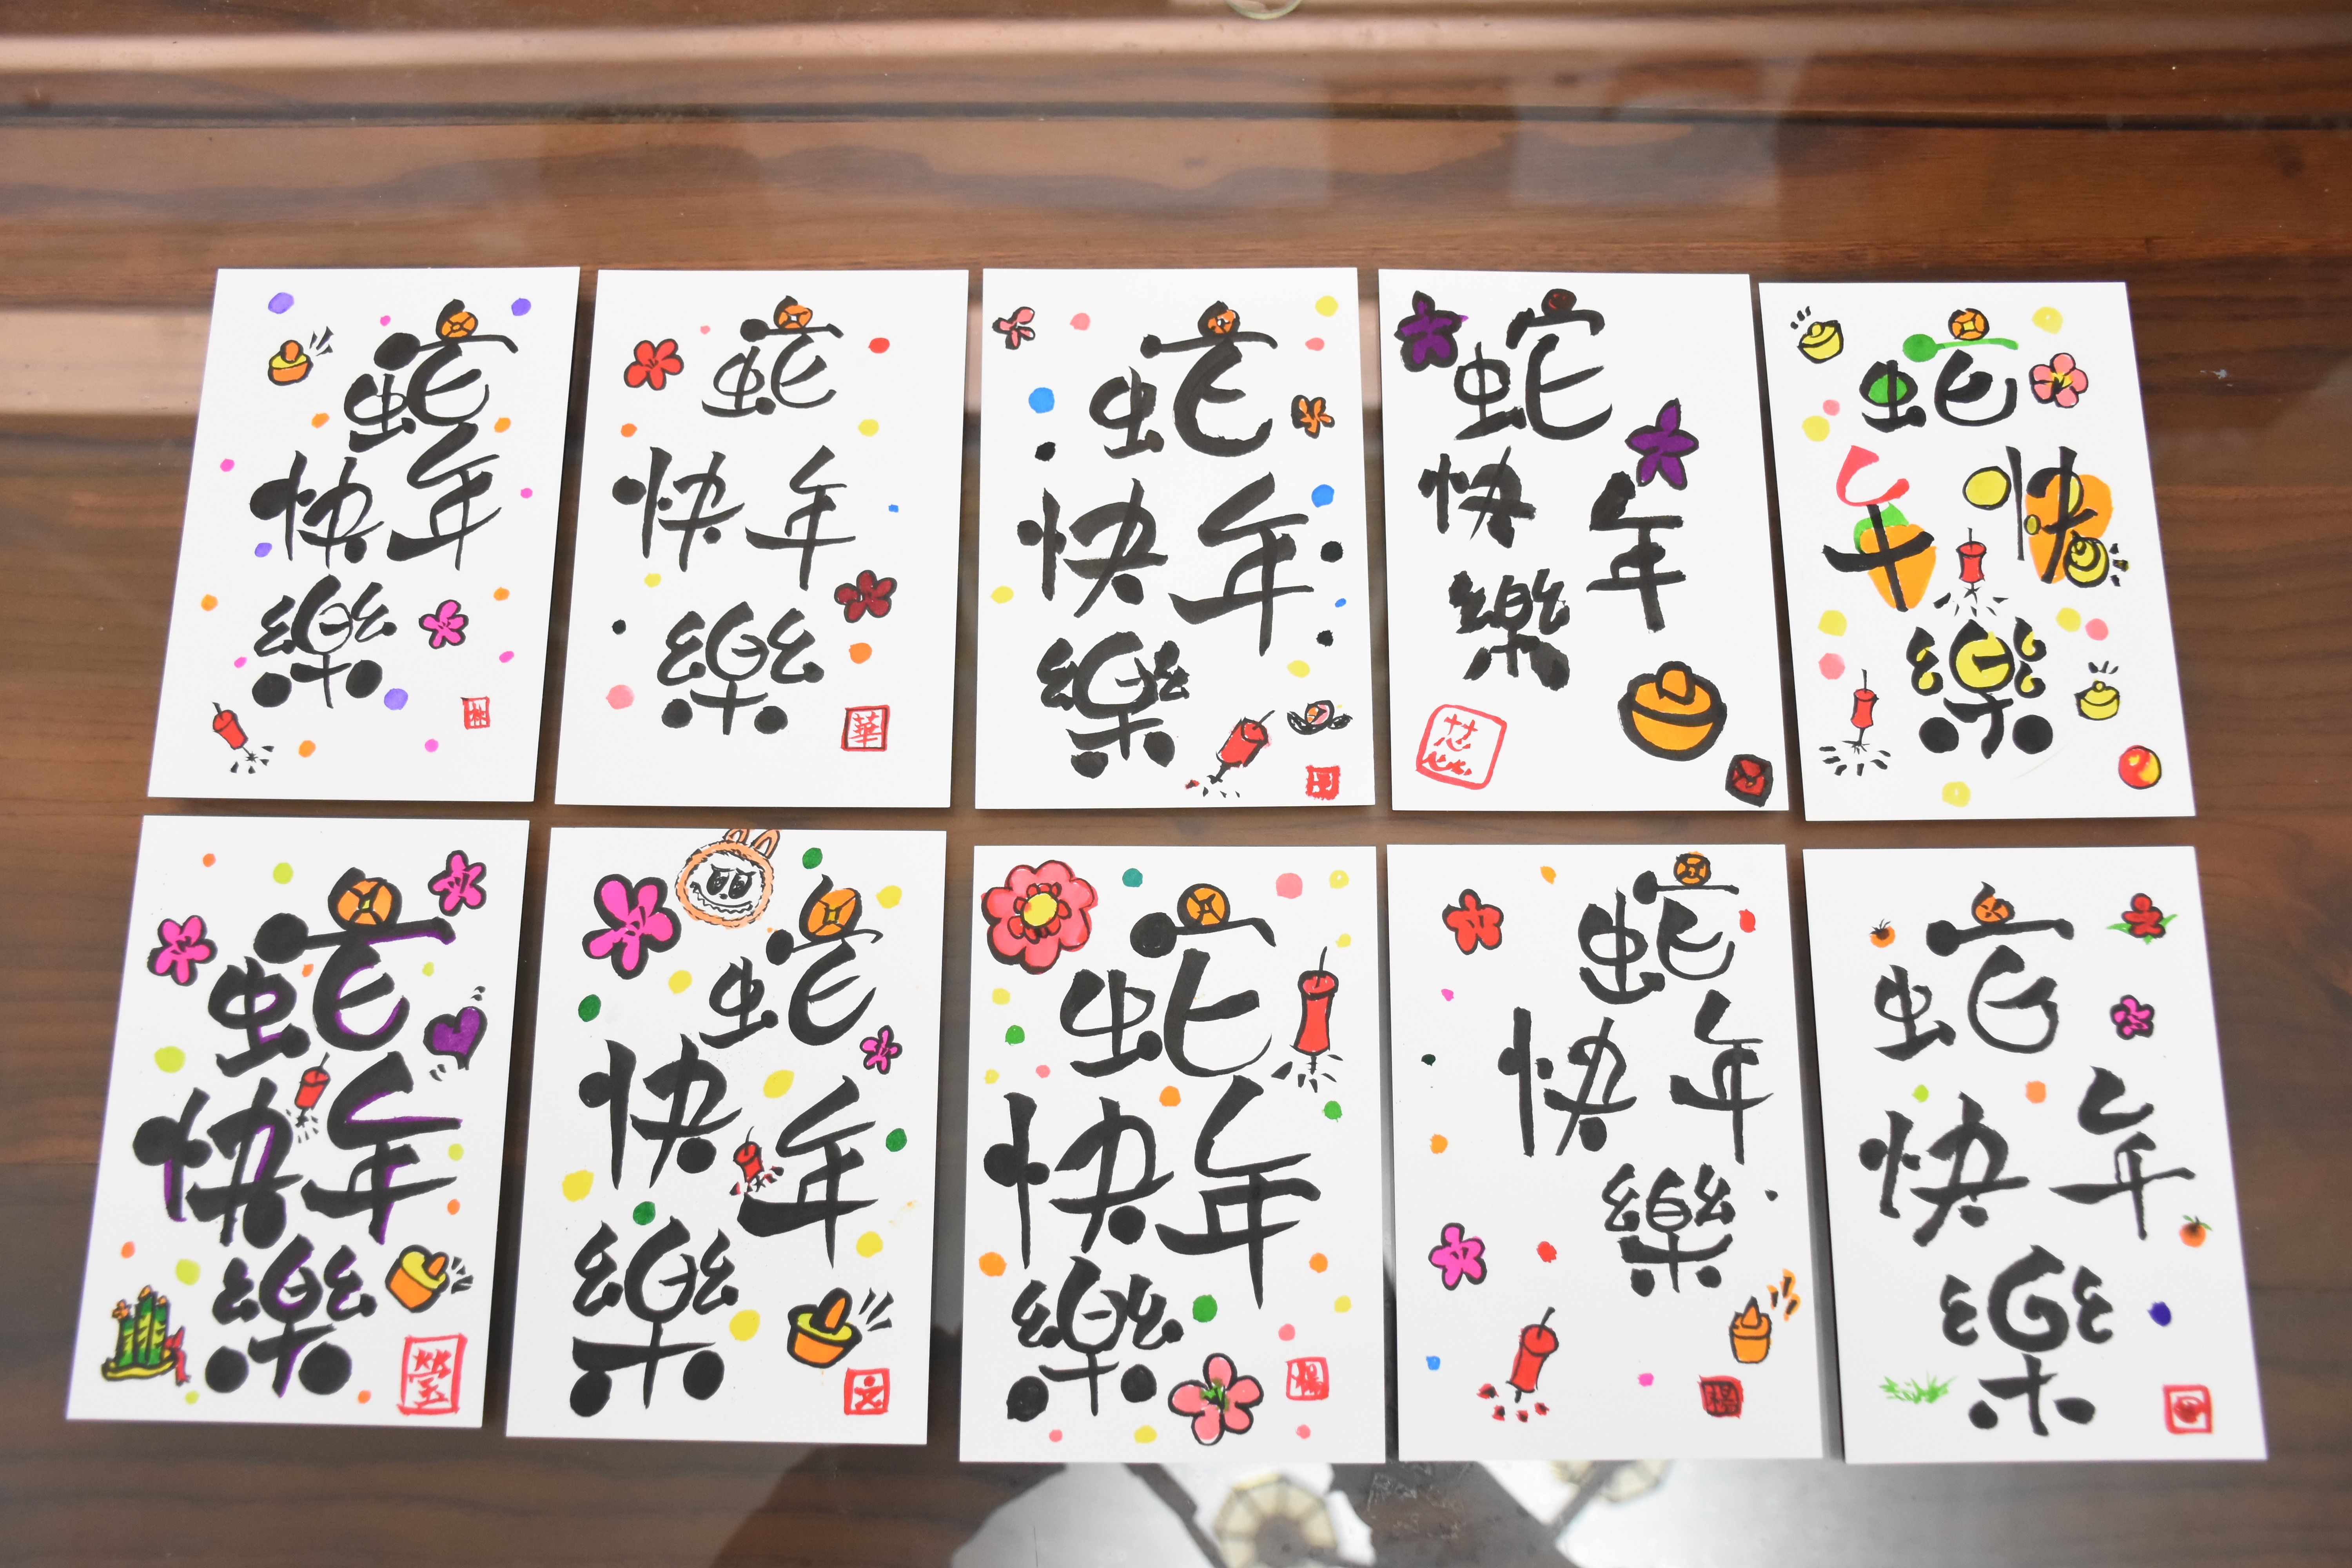 蛇年快樂
蛇年快樂
華
蛇年快樂
蛇年快樂
芯
蛇年快樂
蛇年快樂
瑩
蛇年快樂
蛇年快樂
蛇年快樂
蛇年快樂